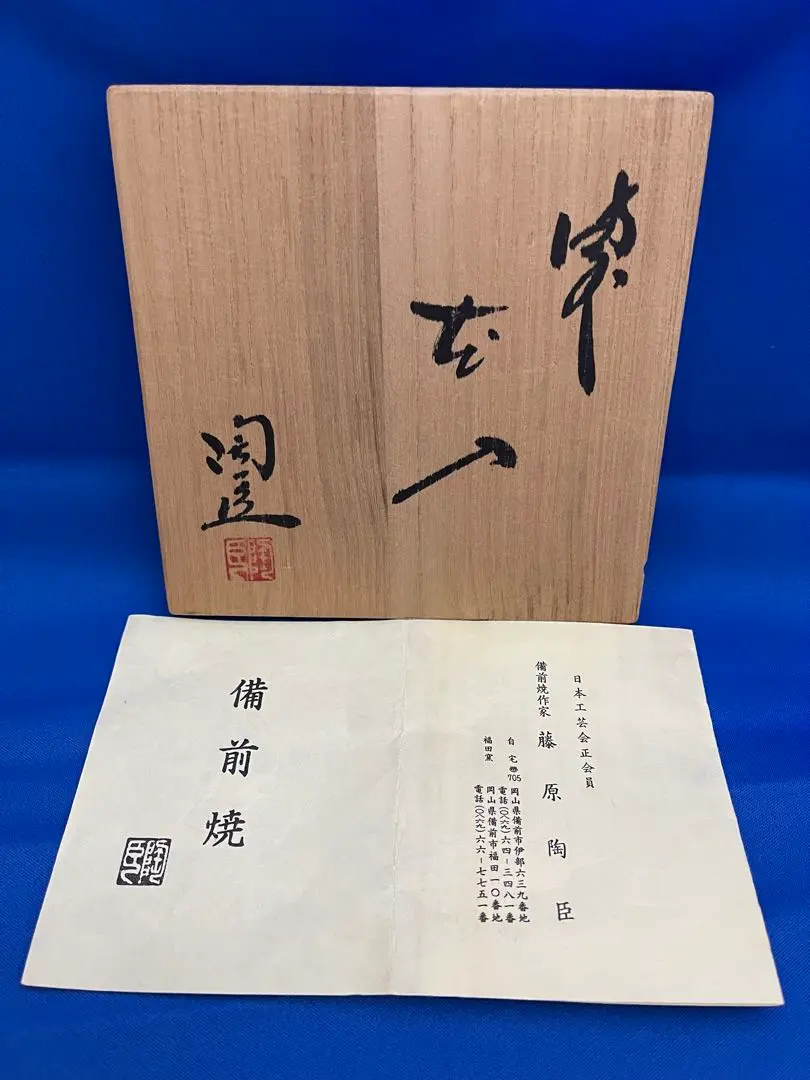 花入
陶臣
陶臣
日本工芸会正会員
備前焼作家 藤原陶臣
自宅 〒705 岡山県備前市伊部六三九番地
電話(〇八六九)六四-三四八一番
福田窯 岡山県備前市福田一〇番地
電話(〇八六九)六六-七七五一番
備前焼
陶臣